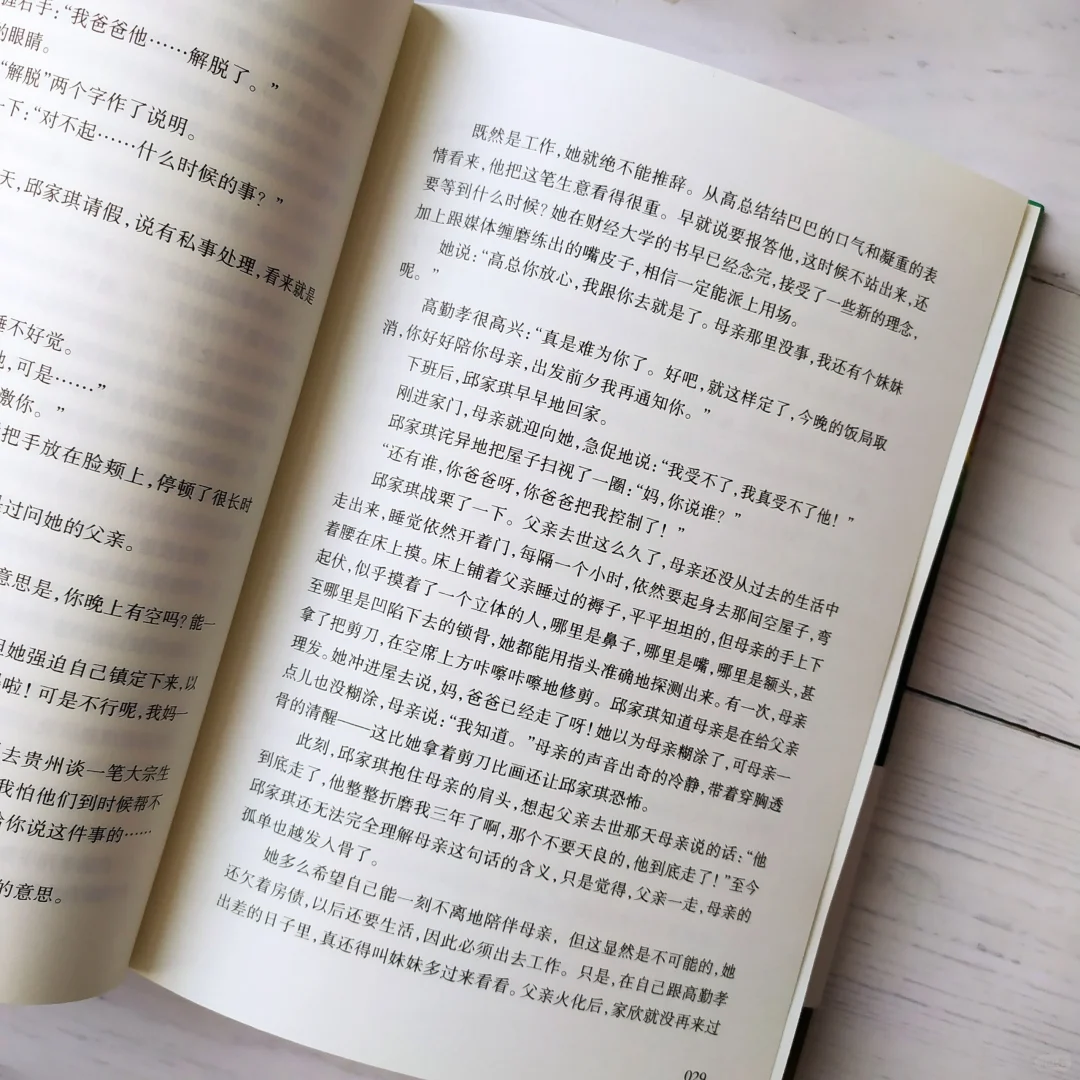 握右手：“我爸爸他……解脱了。”
的眼睛。
“解脱”两个字作了说明。
一下：“对不起……什么时候的事？”
天，邱家琪请假，说有私事处理，看来就是
睡不好觉。
他，可是……”
激你。”
把手放在脸颊上，停顿了很长时
过问她的父亲。
意思是，你晚上有空吗？能一
但她强迫自己镇定下来，以
啦！可是不行呢，我妈一
去贵州谈一笔大宗生
我怕他们到时候帮不
给你说这件事的……
的意思。
既然是工作，她就绝不能推辞。从高总结结巴巴的口气和凝重的表
情看来，他把这笔生意看得很重。早就说要报答他，这时候不站出来，还
要等到什么时候？她在财经大学的书早已经念完，接受了一些新的理念，
加上跟媒体缠磨练出的嘴皮子，相信一定能派上用场。
她说：“高总你放心，我跟你去就是了。母亲那里没事，我还有个妹妹
呢。”
高勤孝很高兴：“真是难为你了。好吧，就这样定了，今晚的饭局取
消，你好好陪你母亲，出发前夕我再通知你。”
下班后，邱家琪早早地回家。
刚进家门，母亲就迎向她，急促地说：“我受不了，我真受不了他！”
邱家琪诧异地把屋子扫视了一圈：“妈，你说谁？”
“还有谁，你爸爸呀，你爸爸把我控制了！”
邱家琪战栗了一下。父亲去世这么久了，母亲还没从过去的生活中
走出来，睡觉依然开着门，每隔一个小时，依然要起身去那间空屋子，弯
着腰在床上摸。床上铺着父亲睡过的褥子，平平坦坦的，但母亲的手上下
起伏，似乎摸着了一个立体的人，哪里是鼻子，哪里是嘴，哪里是额头，甚
至哪里是凹陷下去的锁骨，她都能用指头准确地探测出来。有一次，母亲
拿了把剪刀，在空席上方咔嚓咔嚓地修剪。邱家琪知道母亲是在给父亲
理发。她冲进屋去说，妈，爸爸已经走了呀！她以为母亲糊涂了，可母亲一
点儿也没糊涂，母亲说：“我知道。”母亲的声音出奇的冷静，带着穿胸透
骨的清醒——这比她拿着剪刀比画还让邱家琪恐怖。
此刻，邱家琪抱住母亲的肩头，想起父亲去世那天母亲说的话：“他
到底走了，他整整折磨我三年了啊，那个不要天良的，他到底走了！”至今
邱家琪还无法完全理解母亲这句话的含义，只是觉得，父亲一走，母亲的
孤单也越发入骨了。
她多么希望自己能一刻不离地陪伴母亲，但这显然是不可能的，她
还欠着房债，以后还要生活，因此必须出去工作。只是，在自己跟高勤孝
出差的日子里，真还得叫妹妹多过来看看。父亲火化后，家欣就没再来过
029